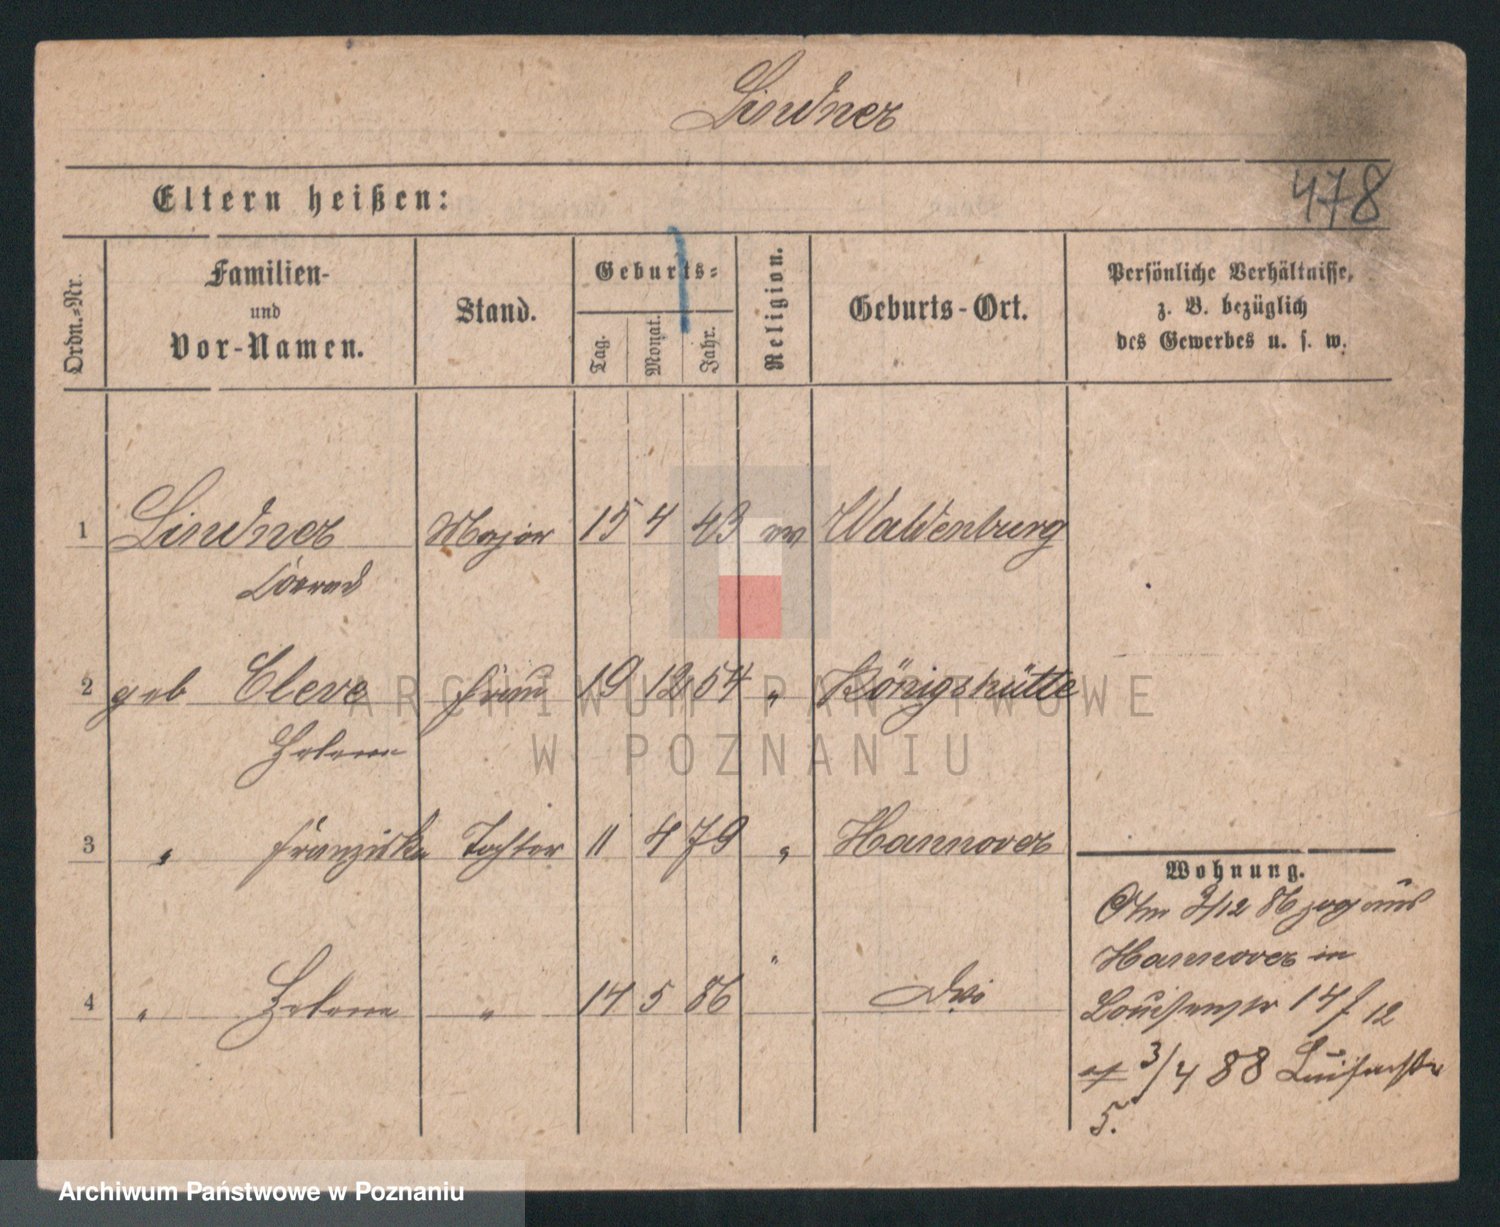 Lindner
Eltern heißen:
478
Ordn.-Nr.
Familien-
und
Vor-Namen.
Stand.
Geburts-
Tag.
Monat.
Jahr.
Religion.
Geburts-Ort.
Persönliche Verhältnisse,
z. B. bezüglich
des Gewerbes u. s. w.
1 Lindner Major 15 4 43 ev Waldenburg
Conrad
2 geb Cleve Frau 19 12 54 " Königshütte
Helene
3 " Franziska Tochter 11 4 79 " Hannover
4 " Helene " 14 5 86 " Dto
Wohnung.
3/12 86 zog aus
Hannover in
Louisenstr 14 12
3/4 88 Luisenstr
5.
ARCHIWUM PAŃSTWOWE
W POZNANIU
Archiwum Państwowe w Poznaniu